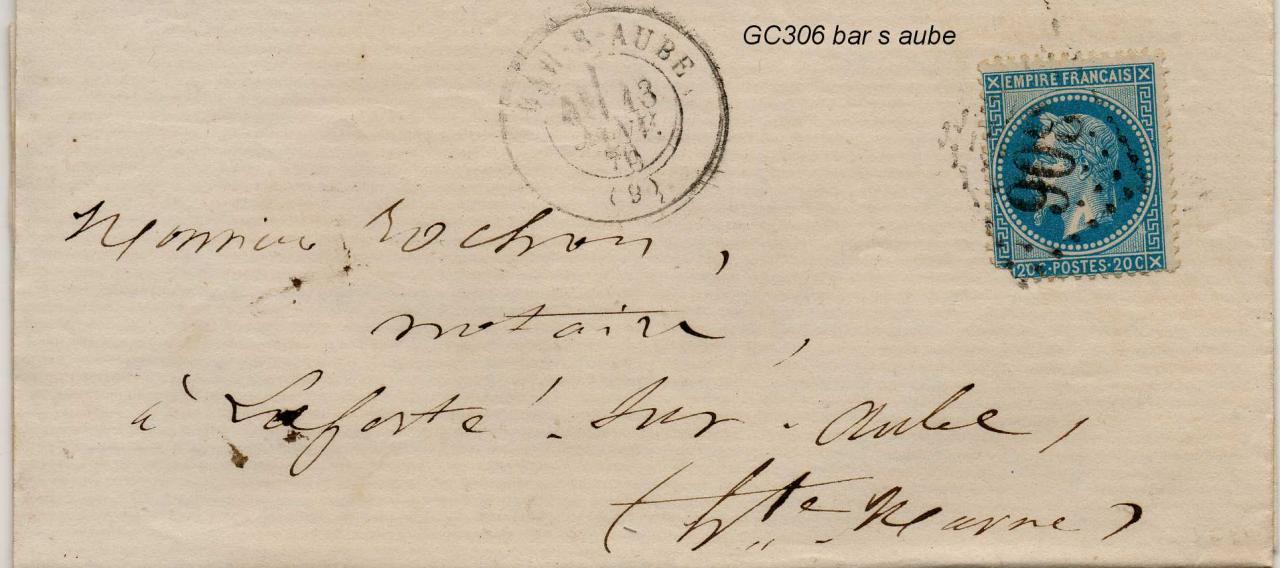 GC306 bar s aube
BAR-S-AUBE
13
JANV.
70
(9)
EMPIRE FRANCAIS
306
20C·POSTES·20C
Monsieur Rochon,
notaire,
à Laferté-sur-Aube,
(Hte Marne)